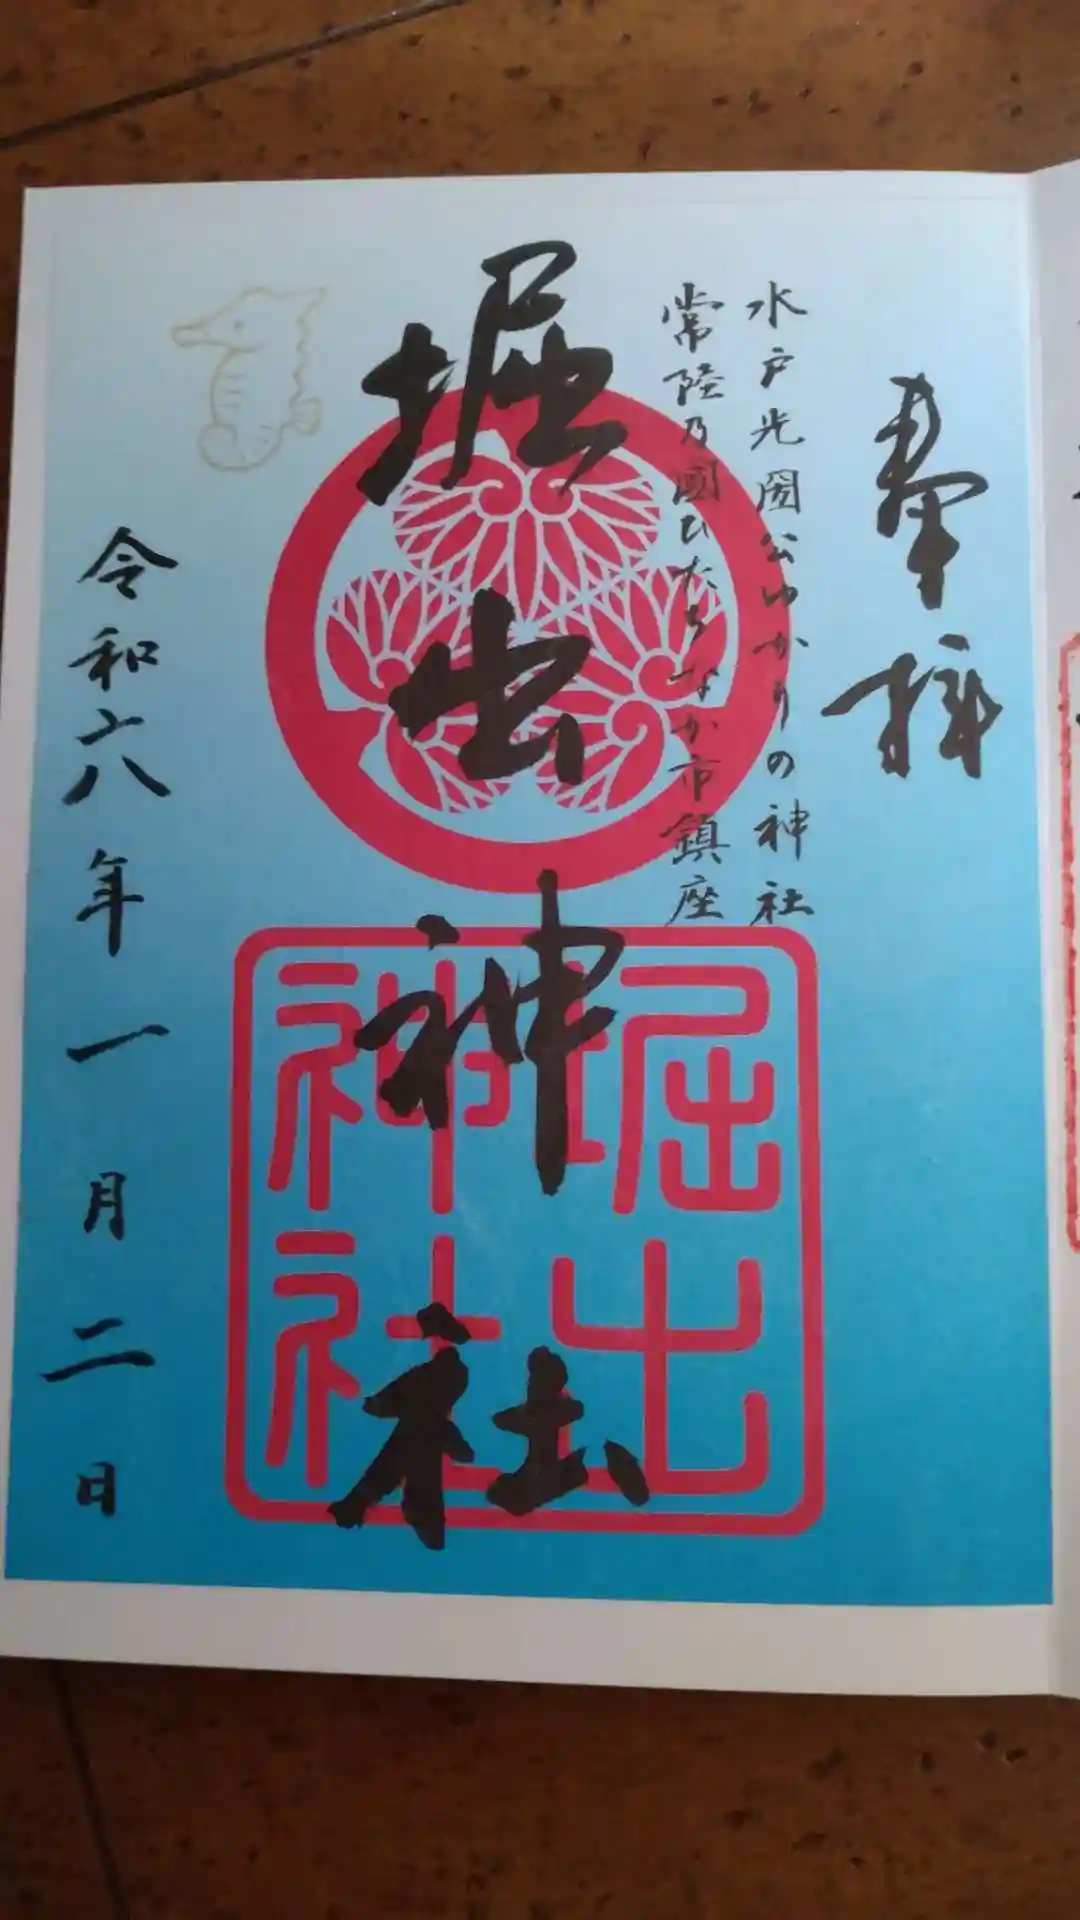 奉拝
水戸光圀公ゆかりの神社
常陸乃國ひたちなか市鎮座
堀出神社
堀出
神社
令和六年一月二日